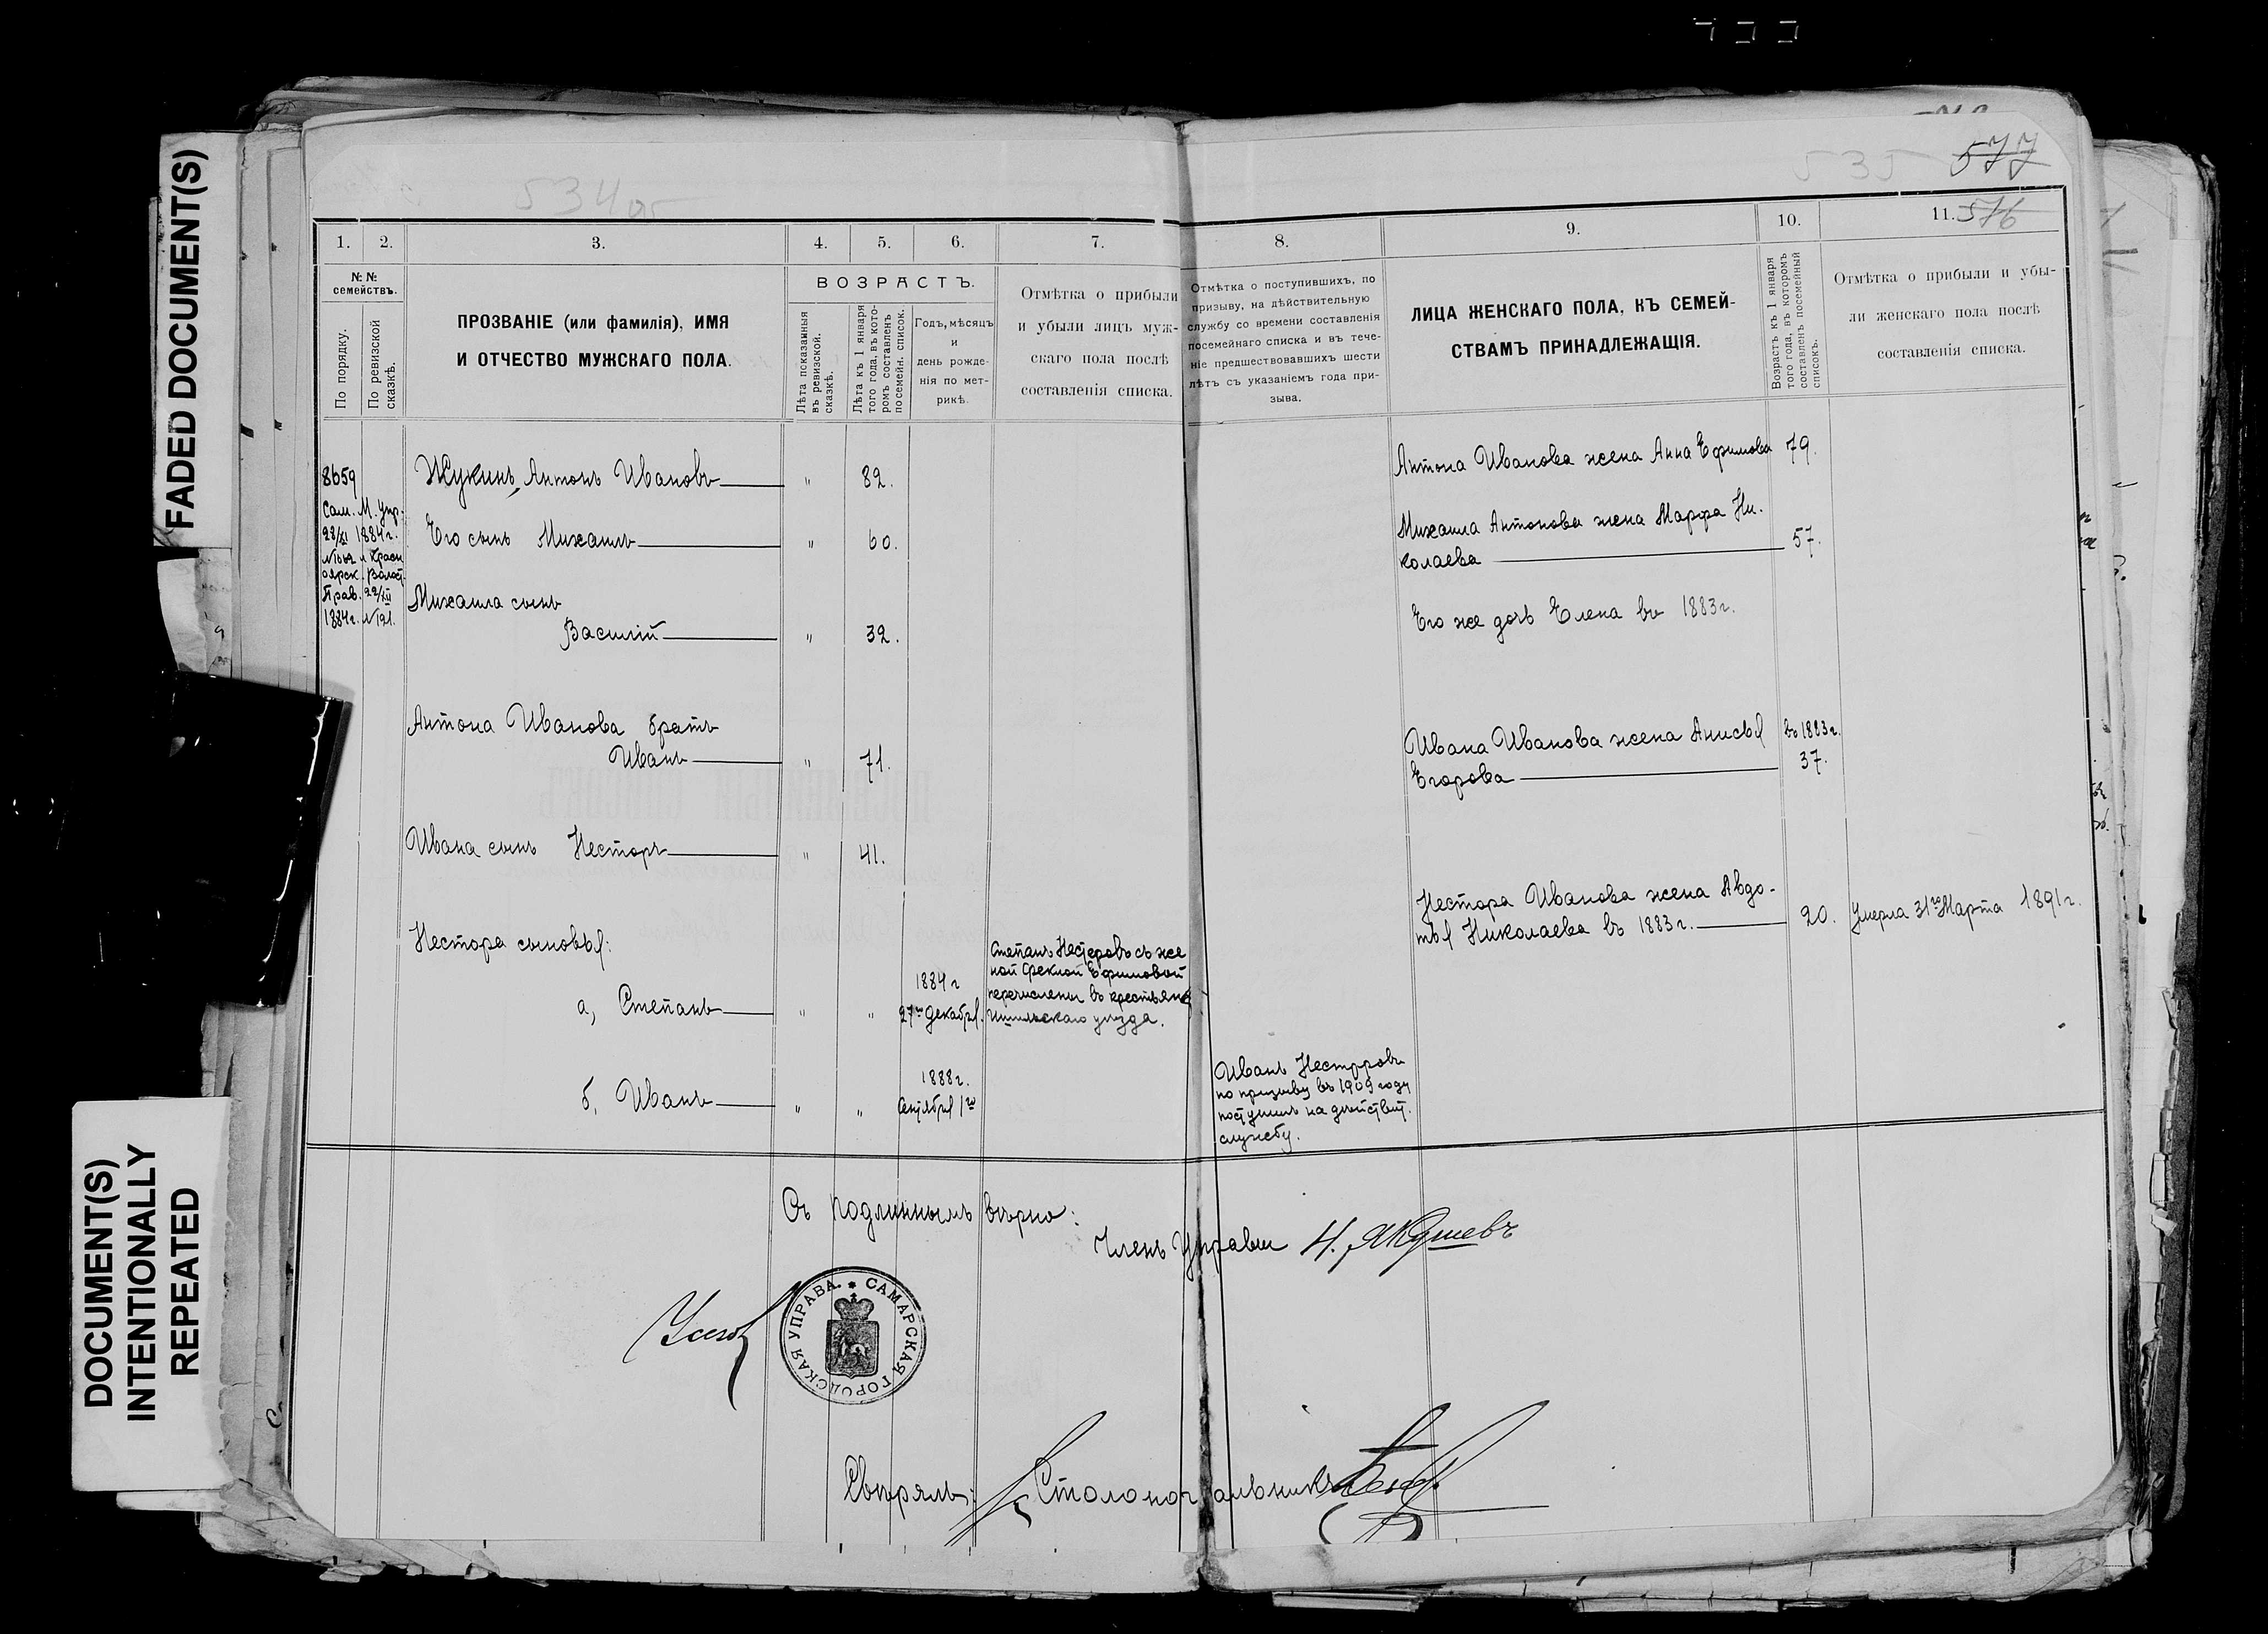 FADED DOCUMENT(S)
DOCUMENT(S)
INTENTIONALLY
REPEATED
534 об
535
577
576
1.
2.
3.
4.
5.
6.
7.
8.
9.
10.
11.
№ №
семействъ.
По порядку.
По ревизской
сказкѣ.
ПРОЗВАНІЕ (или фамилія), ИМЯ
И ОТЧЕСТВО МУЖСКАГО ПОЛА.
ВОЗРАСТЪ.
Лѣта показанныя
въ ревизской.
сказкѣ.
Лѣта къ 1 января
того года, въ кото-
ромъ составленъ
посемейн. список.
Годъ, мѣсяцъ
и
день рожде-
нія по мет-
рикѣ.
Отмѣтка о прибыли
и убыли лицъ муж-
скаго пола послѣ
составленія списка.
Отмѣтка о поступившихъ, по
призыву, на дѣйствительную
службу со времени составленія
посемейнаго списка и въ тече-
ніе предшествовавшихъ шести
лѣтъ съ указаніемъ года при-
зыва.
ЛИЦА ЖЕНСКАГО ПОЛА, КЪ СЕМЕЙ-
СТВАМЪ ПРИНАДЛЕЖАЩІЯ.
Возрастъ къ 1 января
того года, въ которомъ
составленъ посемейный
списокъ.
Отмѣтка о прибыли и убы-
ли женскаго пола послѣ
составленія списка.
8659
Сам. М. Упр.
28/XI 1884 г.
и Красн
оярск. Волост.
Прав. 22/XII
1884 г. № 121.
Жукинъ, Антонъ Ивановъ " 82.
Его сынъ Михаилъ " 60.
Михаила сынъ
Василій " 32.
Антона Иванова братъ
Иванъ " 71.
Ивана сынъ Несторъ " 41.
Нестора сыновья:
а, Степанъ " "
1884 г
27го декабря.
Степанъ Нестеровъ съ же
ной Феклой Ефимовой
перечислены въ крестьяне
Ишимскаго уѣзда.
б, Иванъ " "
1888 г.
Сентября 1го
Иванъ Несторовъ
по призыву въ 1909 году
поступилъ на дѣйствит.
службу.
Антона Иванова жена Анна Ефимова 79.
Михаила Антонова жена Марфа Ни-
колаева 57.
Его же дочь Елена въ 1883 г.
Ивана Иванова жена Анисья въ 1883 г.
Егорова 37.
Нестора Иванова жена Авдо-
тья Николаева въ 1883 г. 20. Умерла 31го Марта 1891 г.
Съ подлиннымъ вѣрно:
Членъ Управы Н. Якушевъ
САМАРСКАЯ ГОРОДСКАЯ УПРАВА.
Свѣрялъ: Столоначальникъ